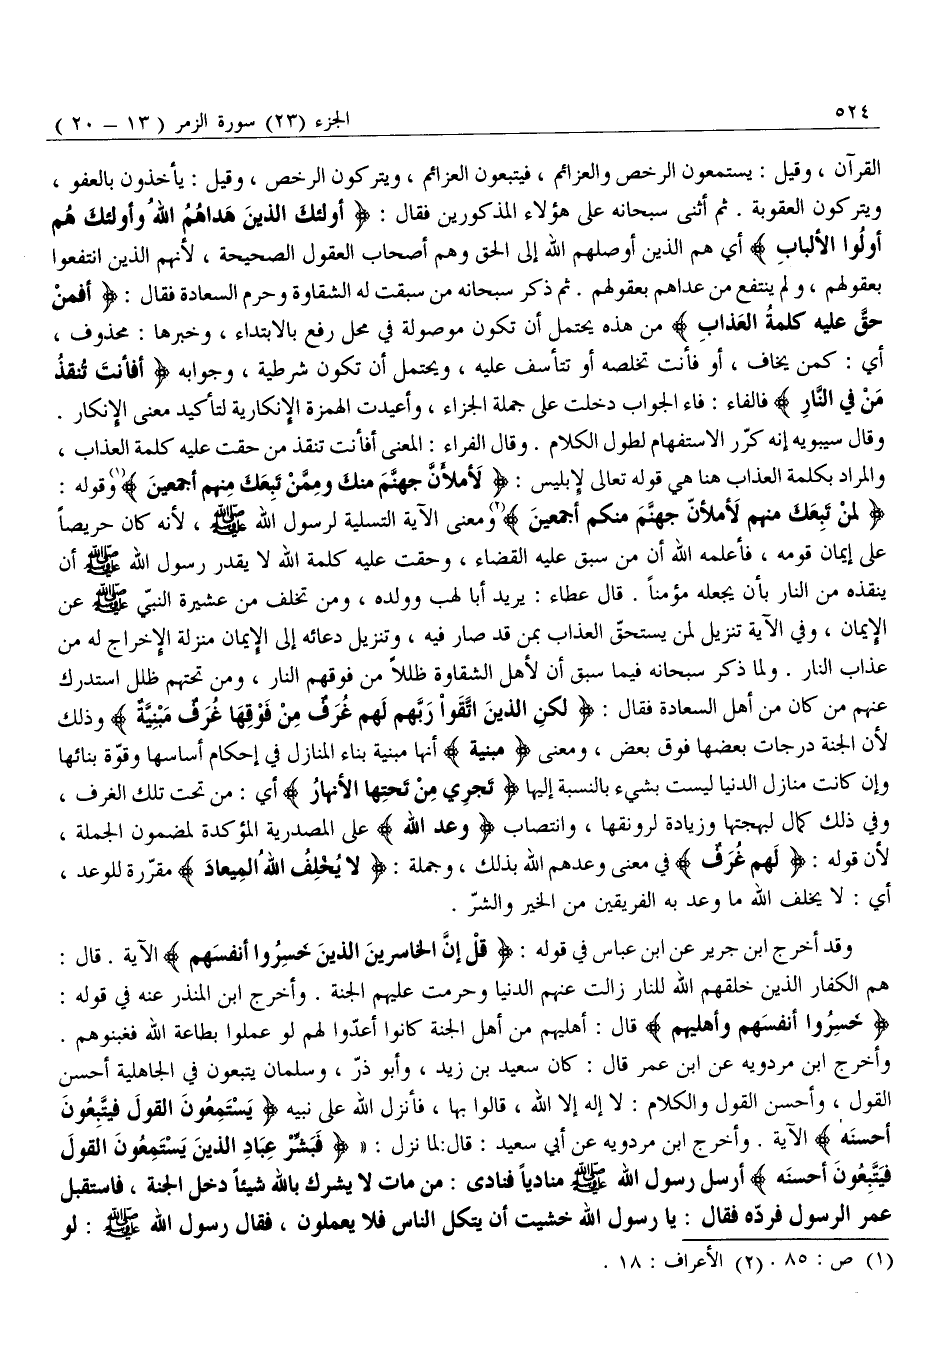 ٥٢٤
الجزء (٢٣) سورة الزمر ( ١٣ – ٢٠ )
القرآن ، وقيل : يستمعون الرخص والعزائم ، فيتبعون العزائم ، ويتركون الرخص ، وقيل : يأخذون بالعفو ،
ويتركون العقوبة . ثم أثنى سبحانه على هؤلاء المذكورين فقال : ﴿ أولئكَ الذينَ هَداهُمُ اللهُ وأولئكَ هُم
أولُوا الألبابِ ﴾ أي هم الذين أوصلهم الله إلى الحق وهم أصحاب العقول الصحيحة ، لأنهم الذين انتفعوا
بعقولهم ، ولم ينتفع من عداهم بعقولهم . ثم ذكر سبحانه من سبقت له الشقاوة وحرم السعادة فقال : ﴿ أفمنْ
حقَّ عليه كلمةُ العَذابِ ﴾ من هذه يحتمل أن تكون موصولة في محل رفع بالابتداء ، وخبرها : محذوف ،
أي : كمن يخاف ، أو فأنت تخلصه أو تتأسف عليه ، ويحتمل أن تكون شرطية ، وجوابه ﴿ أفأنتَ تُنقذُ
مَنْ في النَّارِ ﴾ فالفاء : فاء الجواب دخلت على جملة الجزاء ، وأعيدت الهمزة الإنكارية لتأكيد معنى الإنكار .
وقال سيبويه إنه كرّر الاستفهام لطول الكلام . وقال الفراء : المعنى أفأنت تنقذ من حقت عليه كلمة العذاب ،
والمراد بكلمة العذاب هنا هي قوله تعالى لإبليس : ﴿ لَأملأنَّ جهنَّمَ منكَ وممَّنْ تَبِعَكَ مِنهم أجمعينَ ﴾(١) وقوله :
﴿ لمنْ تَبِعَكَ منهم لَأملأنّ جهنَّمَ منكم أجمعينَ ﴾(٢) ومعنى الآية التسلية لرسول الله ﷺ ، لأنه كان حريصاً
على إيمان قومه ، فأعلمه الله أن من سبق عليه القضاء ، وحقت عليه كلمة الله لا يقدر رسول الله ﷺ أن
ينقذه من النار بأن يجعله مؤمناً . قال عطاء : يريد أبا لهب وولده ، ومن تخلف من عشيرة النبيّ ﷺ عن
الإيمان ، وفي الآية تنزيل لمن يستحقّ العذاب بمن قد صار فيه ، وتنزيل دعائه إلى الإيمان منزلة الإخراج له من
عذاب النار . ولما ذكر سبحانه فيما سبق أن لأهل الشقاوة ظللاً من فوقهم النار ، ومن تحتهم ظلل استدرك
عنهم من كان من أهل السعادة فقال : ﴿ لكنِ الذينَ اتَّقواْ رَبَّهم لهم غُرَفٌ مِنْ فَوْقِهَا غُرَفٌ مَبْنِيَّةٌ ﴾ وذلك
لأن الجنة درجات بعضها فوق بعض ، ومعنى ﴿ مبنية ﴾ أنها مبنية بناء المنازل في إحكام أساسها وقوّة بنائها
وإن كانت منازل الدنيا ليست بشيء بالنسبة إليها ﴿ تَجرِي مِنْ تَحتِها الأنهارُ ﴾ أي : من تحت تلك الغرف ،
وفي ذلك كمال لبهجتها وزيادة لرونقها ، وانتصاب ﴿ وعد الله ﴾ على المصدرية المؤكدة لمضمون الجملة ،
لأن قوله : ﴿ لَهم غُرَفٌ ﴾ في معنى وعدهم الله بذلك ، وجملة : ﴿ لا يُخْلِفُ اللهُ الميعادَ ﴾ مقرّرة للوعد ،
أي : لا يخلف الله ما وعد به الفريقين من الخير والشرّ .
وقد أخرج ابن جرير عن ابن عباس في قوله : ﴿ قلْ إنَّ الخاسرينَ الذينَ خَسِرُوا أنفسَهم ﴾ الآية . قال :
هم الكفار الذين خلقهم الله للنار زالت عنهم الدنيا وحرمت عليهم الجنة . وأخرج ابن المنذر عنه في قوله :
﴿ خَسِرُوا أنفسَهم وأهليهم ﴾ قال : أهليهم من أهل الجنة كانوا أعدّوا لهم لو عملوا بطاعة الله فغبنوهم .
وأخرج ابن مردويه عن ابن عمر قال : كان سعيد بن زيد ، وأبو ذرّ ، وسلمان يتبعون في الجاهلية أحسن
القول ، وأحسن القول والكلام : لا إله إلا الله ، قالوا بها ، فأنزل الله على نبيه ﴿ يَسْتَمِعُونَ القولَ فيتَّبِعُونَ
أحسنَه ﴾ الآية . وأخرج ابن مردويه عن أبي سعيد : قال:لما نزل : « ﴿ فَبَشِّرْ عِبَادِ الذينَ يَسْتَمِعُونَ القولَ
فيَتَّبِعُونَ أحسنَه ﴾ أرسل رسول الله ﷺ منادياً فنادى : من مات لا يشرك بالله شيئاً دخل الجنة ، فاستقبل
عمر الرسول فردّه فقال : يا رسول الله خشيت أن يتكل الناس فلا يعملون ، فقال رسول الله ﷺ : لو
(١) ص : ٨٥ . (٢) الأعراف : ١٨ .